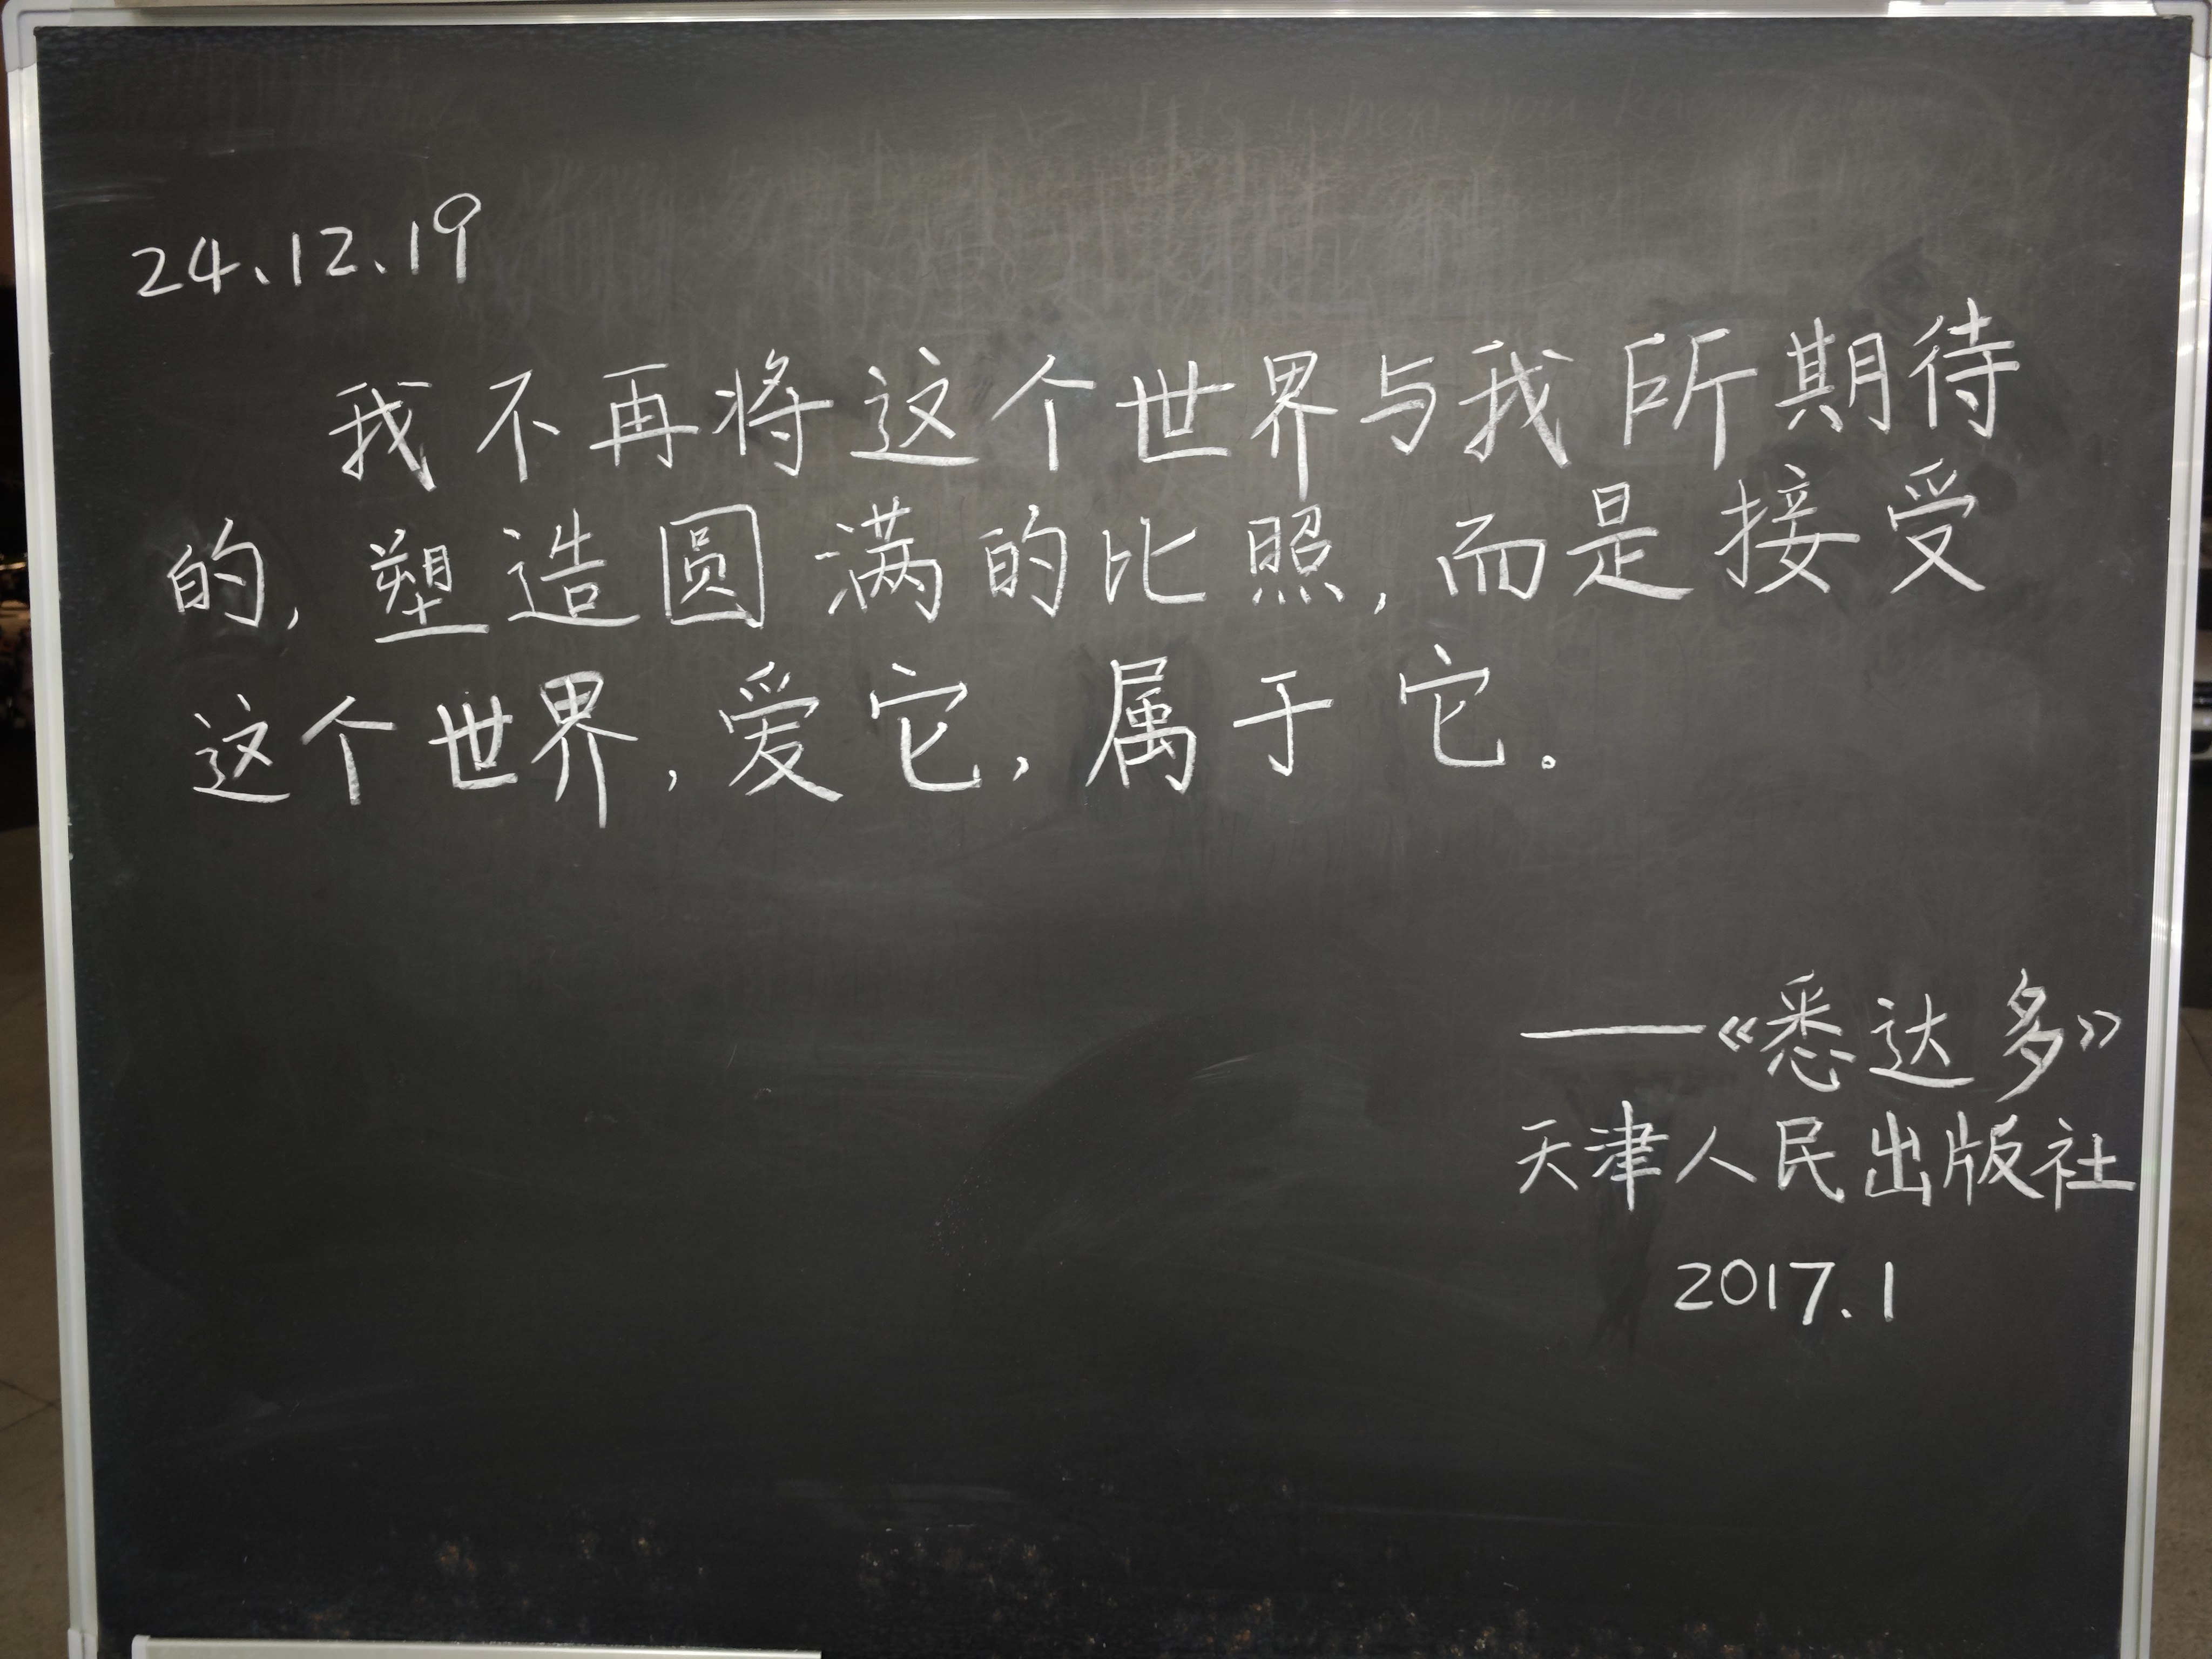 24.12.19
我不再将这个世界与我所期待
的，塑造圆满的比照，而是接受
这个世界，爱它，属于它。
——《悉达多》
天津人民出版社
2017.1